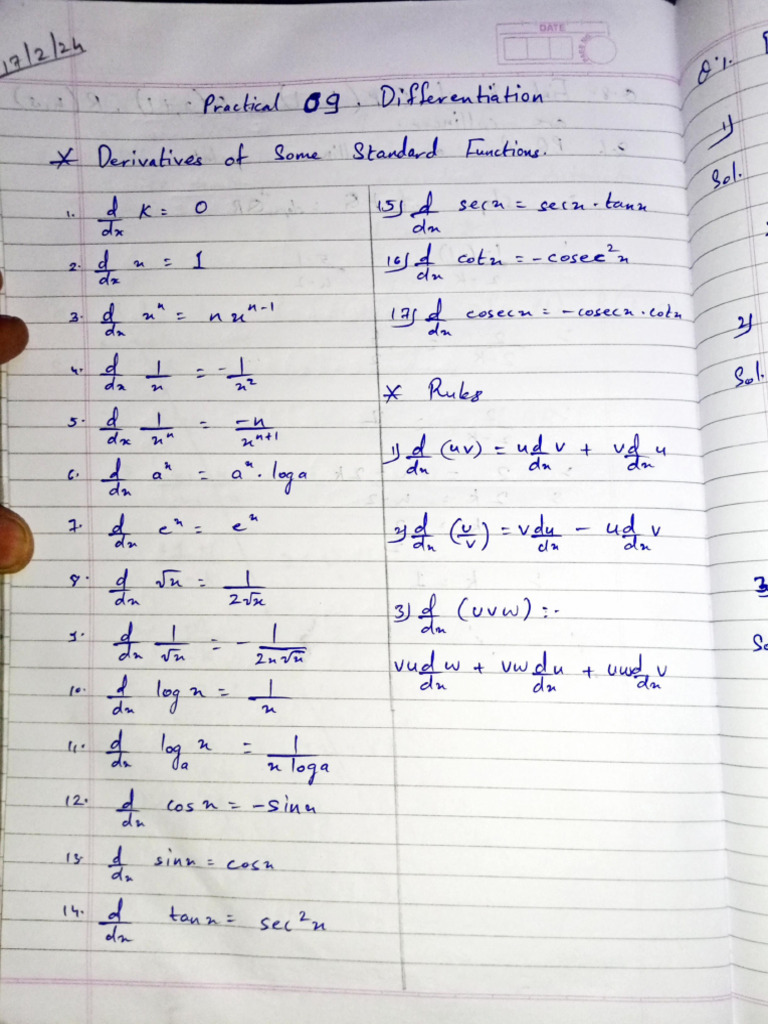 17/2/24
DATE
Practical 09. Differentiation
* Derivatives of Some Standard Functions.
1. d/dx K = 0
2. d/dx x = 1
3. d/dx xⁿ = n xⁿ⁻¹
4. d/dx 1/x = -1/x²
5. d/dx 1/xⁿ = -n/xⁿ⁺¹
6. d/dx aˣ = aˣ. loga
7. d/dx eˣ = eˣ
8. d/dx √x = 1/2√x
9. d/dx 1/√x = - 1/2x√x
10. d/dx log x = 1/x
11. d/dx logₐ x = 1/x loga
12. d/dx cos x = -sinx
13. d/dx sinx = cosx
14. d/dx tanx = sec²x
15) d/dx secx = secx. tanx
16) d/dx cotx = -cosec²x
17) d/dx cosecx = -cosecx. cotx
* Rules
1) d/dx (uv) = u d/dx v + v d/dx u
2) d/dx (u/v) = v du/dx - u d/dx v
3) d/dx (uvw) =-
vu d/dx w + vw d/dx u + uw d/dx v
Q.1.
1)
Sol.
2)
Sol.
3
So